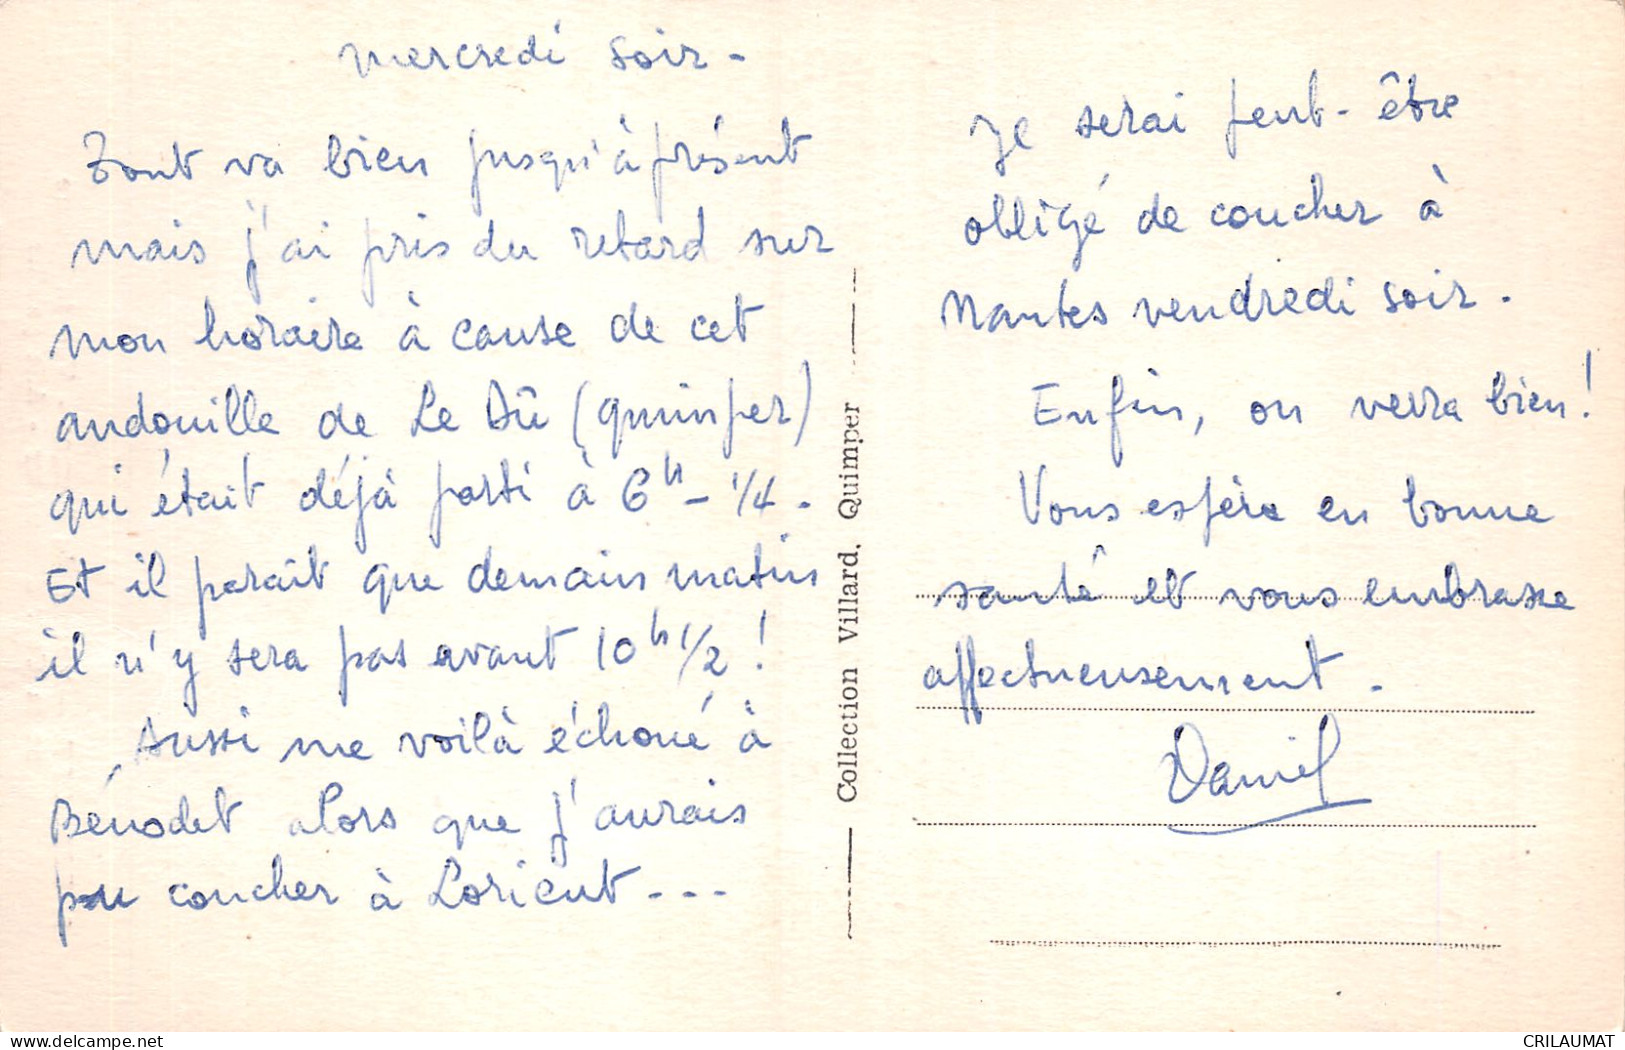 mercredi soir -
Tout va bien jusqu'à présent
mais j'ai pris du retard sur
mon horaire à cause de cet
andouille de Le Dû (Quimper)
qui était déjà parti à 6h - 1/4 -
Et il parait que demain matin
il n'y sera pas avant 10h 1/2 !
Aussi me voilà échoué à
Bénodet alors que j'aurais
pu coucher à Lorient - - -
Collection Villard, Quimper
Je serai peut-être
obligé de coucher à
Nantes vendredi soir -
Enfin, on verra bien !
Vous espère en bonne
santé et vous embrasse
affectueusement -
Daniel
delcampe.net
CRILAUMAT